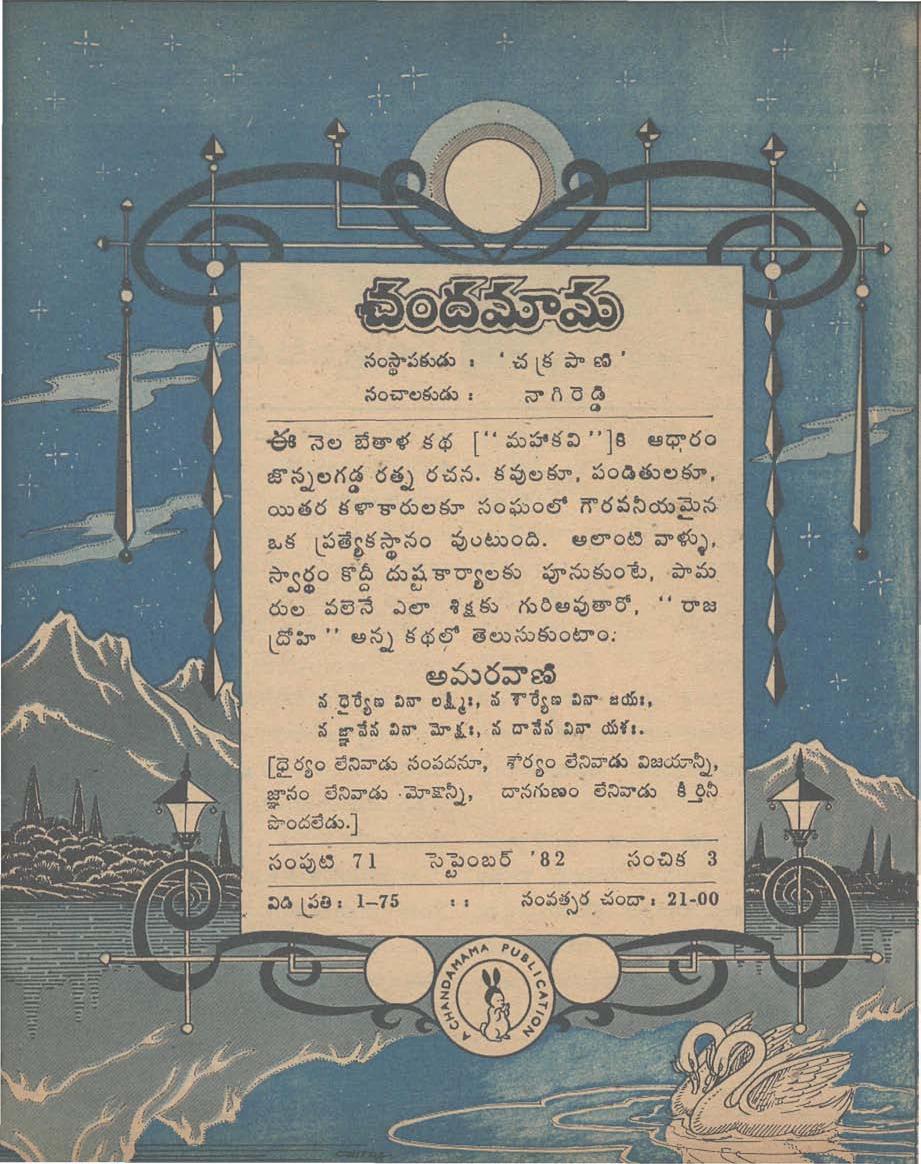 చందమామ
సంస్థాపకుడు : ' చ క్ర పా ణి '
సంచాలకుడు : నా గి రె డ్డి
ఈ నెల బేతాళ కథ [“ మహాకవి ”]కి ఆధారం
జొన్నలగడ్డ రత్న రచన. కవులకూ, పండితులకూ,
యితర కళాకారులకూ సంఘంలో గౌరవనీయమైన
ఒక ప్రత్యేకస్థానం వుంటుంది. అలాంటి వాళ్ళు,
స్వార్థం కొద్దీ దుష్టకార్యాలకు పూనుకుంటే, పామ
రుల వలెనే ఎలా శిక్షకు గురిఅవుతారో, “ రాజ
ద్రోహి ” అన్న కథలో తెలుసుకుంటాం.
అమరవాణి
న ధైర్యేణ వినా లక్ష్మీః, న శౌర్యేణ వినా జయః,
న జ్ఞానేన వినా మోక్షః, న దానేన వినా యశః.
[ధైర్యం లేనివాడు సంపదనూ, శౌర్యం లేనివాడు విజయాన్నీ,
జ్ఞానం లేనివాడు మోక్షాన్నీ, దానగుణం లేనివాడు కీర్తినీ
పొందలేడు.]
సంపుటి 71 సెప్టెంబర్ '82 సంచిక 3
విడి ప్రతి : 1–75 : : సంవత్సర చందా : 21-00
A CHANDAMAMA PUBLICATION